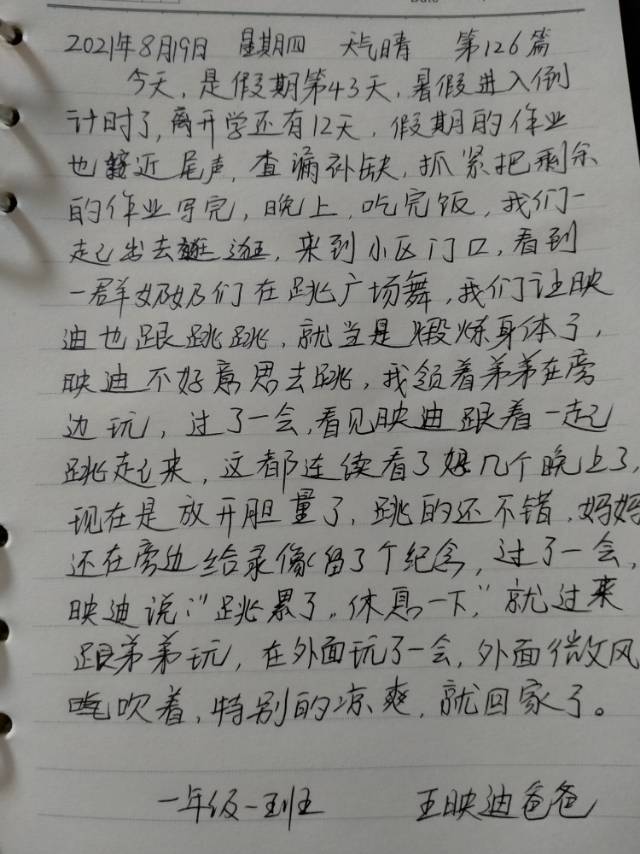 2021年8月19日 星期四 天气晴 第126篇
今天，是假期第43天，暑假进入倒
计时了，离开学还有12天，假期的作业
也接近尾声，查漏补缺，抓紧把剩余
的作业写完，晚上，吃完饭，我们一
起出去逛逛，来到小区门口，看到
一群奶奶们在跳广场舞，我们让映
迪也跟跳跳，就当是煅炼身体了，
映迪不好意思去跳，我领着弟弟在旁
边玩，过了一会，看见映迪跟着一起
跳起来，这都连续看了好几个晚上了，
现在是放开胆量了，跳的还不错，妈妈
还在旁边给录像留了个纪念，过了一会，
映迪说：“跳累了，休息一下，”就过来
跟弟弟玩，在外面玩了一会，外面微风
吹着，特别的凉爽，就回家了。
一年级一班 王映迪爸爸